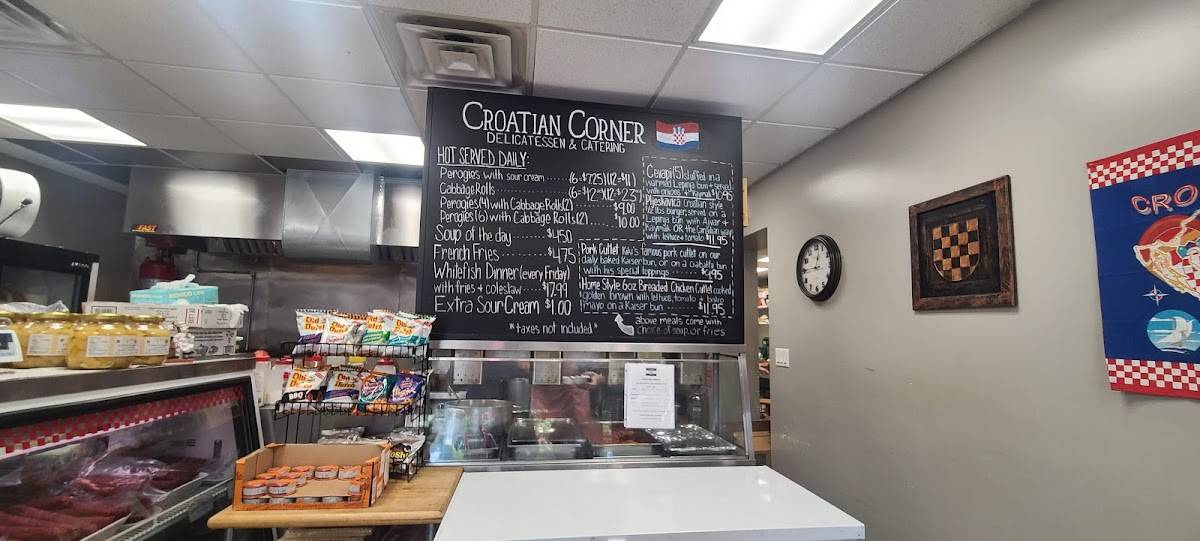 CROATIAN CORNER
DELICATESSEN & CATERING
HOT SERVED DAILY:
Perogies with sour cream ...... (6=$7.25)(12=$11)
Cabbage Rolls
Perogies(4) with Cabbage Rolls(2) . $9.00
Perogies(6) with Cabbage Rolls(2) ... $10.00
Soup of the day ....... $4.50
French Fries ........ $4.75
Whitefish Dinner (every Friday)
with fries + coleslaw ....... $17.99
Extra Sour Cream $1.00
*taxes not included*
Cevapi(5) stuffed in a
warmed Lepinja bun + served
with onions + Kaymak $10.95
Pljeskavica Croatian style
1/2 lbs burger, served on a
Lepinja bun with Ajvar +
Kaymak OR the Canadian way
with lettuce + tomato $11.95
Pork Cutlet famous pork cutlet on our
daily baked Kaiser bun, or on a Ciabatta bun
with his special toppings
Home Style 6oz Breaded Chicken Cutlet cooked
golden brown with lettuce, tomato + bistro
mayo on a Kaiser bun ...... $11.95
above meals come with
choice of soup, or fries
FAST
Old Dutch
CRO